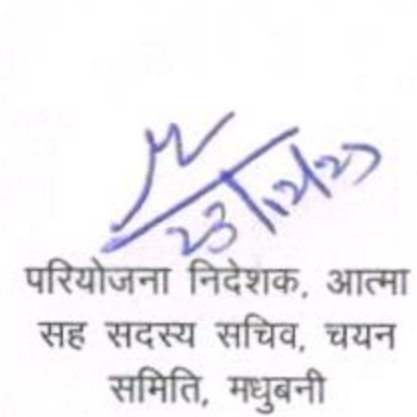 23/12/23
परियोजना निदेशक, आत्मा
सह सदस्य सचिव, चयन
समिति, मधुबनी